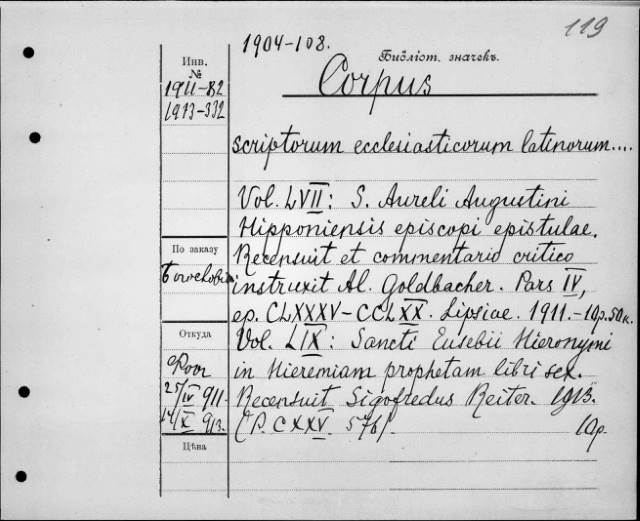 119
1904-108.
Инв.
№
Библіот. значекъ.
1911-82
1913-332
Corpus
scriptorum ecclesiasticorum latinorum....
Vol. LVII: S. Aureli Augustini
Hipponiensis episcopi epistulae.
По заказу
Recensuit et commentario critico
instruxit Al. Goldbacher. Pars IV,
ep. CLXXXV-CCLXX. Lipsiae. 1911.-10р.50к.
Откуда
Vol. LIX: Sancti Eusebii Hieronymi
in Hieremiam prophetam libri sex.
25/IV 911.
Recensuit Sigofredus Reiter. 1913.
14/X 913.
(P. CXXV. 576).
10р.
Цѣна